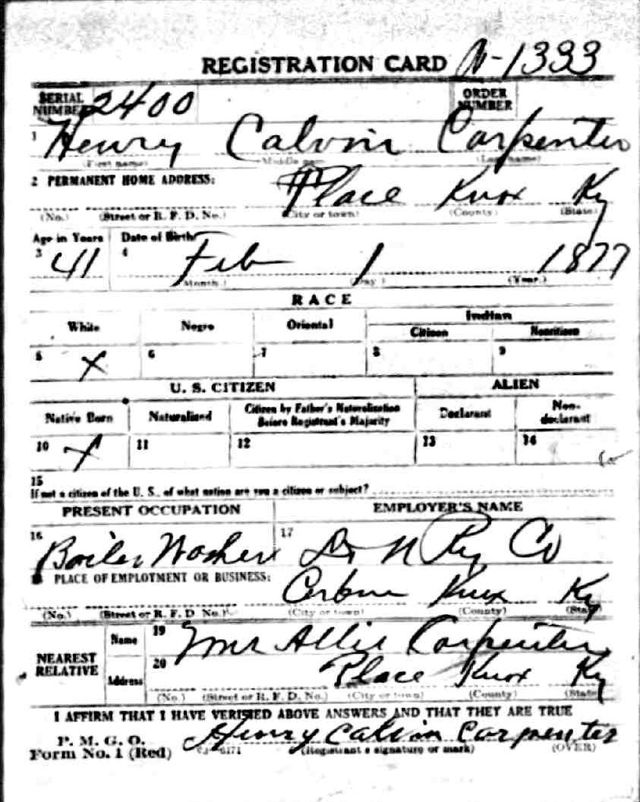 REGISTRATION CARD N-1333
SERIAL NUMBER 2400 ORDER NUMBER
1 Henry Calvin Carpenter
(First name) (Middle name) (Last name)
2 PERMANENT HOME ADDRESS: Place Knox Ky
(No.) (Street or R. F. D. No.) (City or town) (County) (State)
Age in Years Date of Birth
3 41 4 Feb 1 1877
(Month.) (Day.) (Year.)
RACE
White Negro Oriental Indian
Citizen Noncitizen
5 X 6 7 8 9
U. S. CITIZEN ALIEN
Native Born Naturalized Citizen by Father's Naturalization Before Registrant's Majority Declarant Non-declarant
10 X 11 12 13 14
15
If not a citizen of the U. S., of what nation are you a citizen or subject?
PRESENT OCCUPATION EMPLOYER'S NAME
16 Boiler Washer 17 L & N Ry Co
PLACE OF EMPLOYMENT OR BUSINESS:
Knox Ky
(No.) (Street or R. F. D. No.) (City or town) (County) (State)
NEAREST RELATIVE Name 19 Mrs Allie Carpenter
Address 20 Place Knox Ky
(No.) (Street or R. F. D. No.) (City or town) (County) (State)
I AFFIRM THAT I HAVE VERIFIED ABOVE ANSWERS AND THAT THEY ARE TRUE
P. M. G. O.
Form No. 1 (Red) Henry Calvin Carpenter
(Registrant's signature or mark) (OVER)